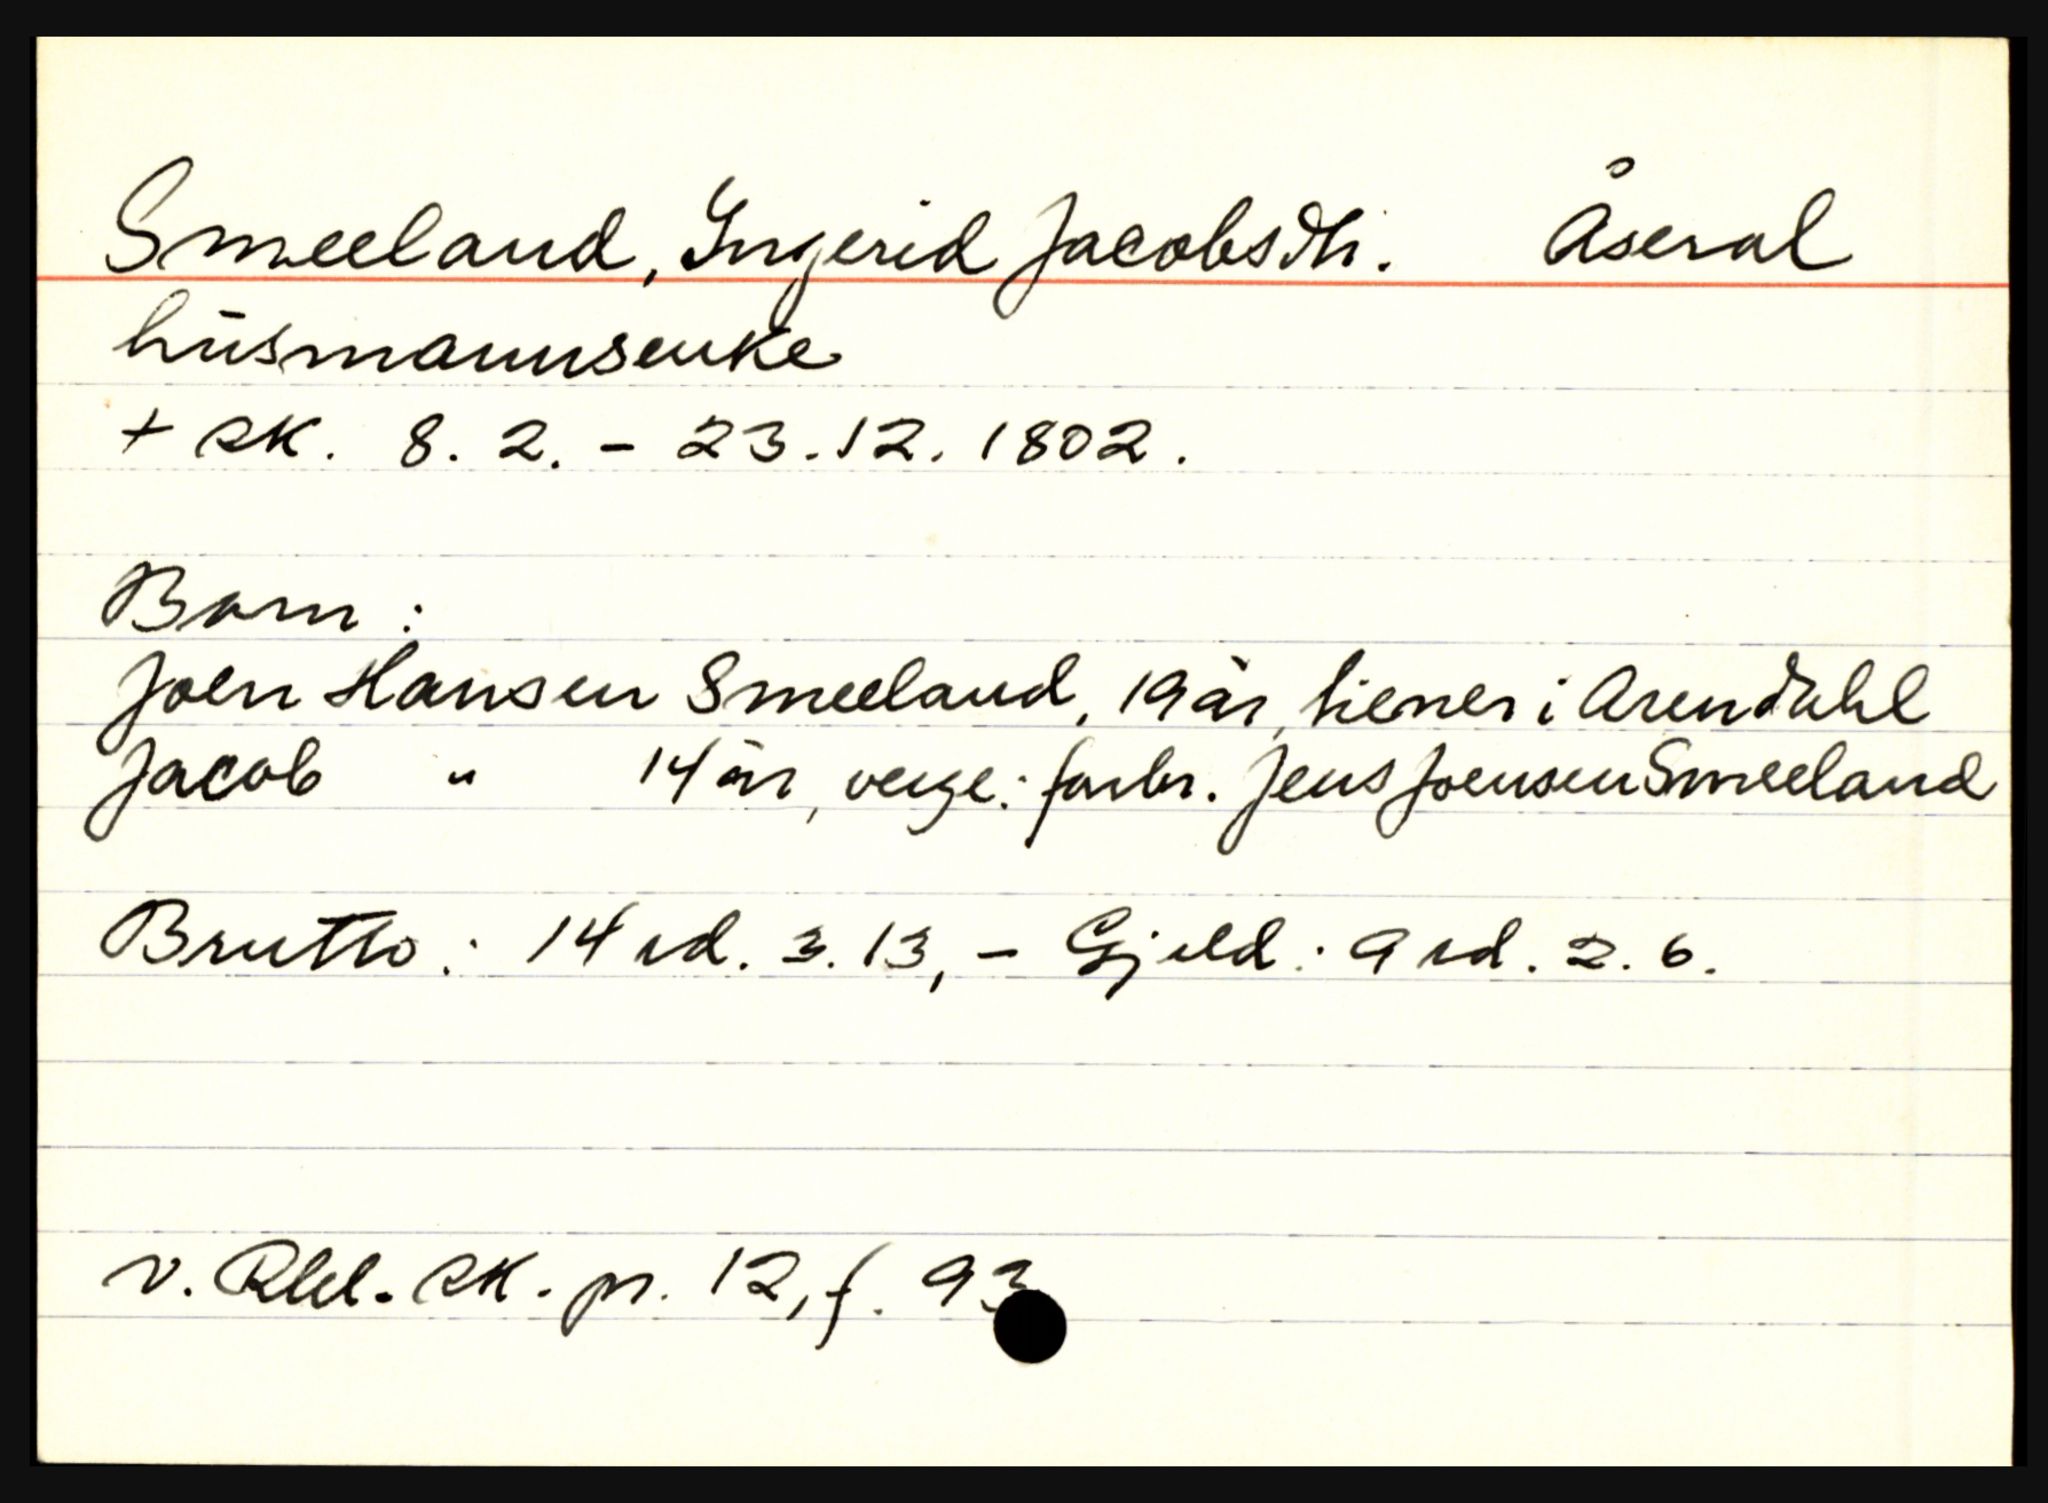 Smeeland, Ingerid Jacobsdtr. Åseral
husmannsenke
+ sk. 8. 2. - 23. 12. 1802.
Born:
Joen Hansen Smeeland, 19 år, tiener i Arendahl
Jacob " 14 år, verge: farbr. Jens Joensen Smeeland
Brutto: 14 rd. 3. 13, - Gjeld: 9 rd. 2. 6.
v. Rbl. sk. pr. 12, f. 93